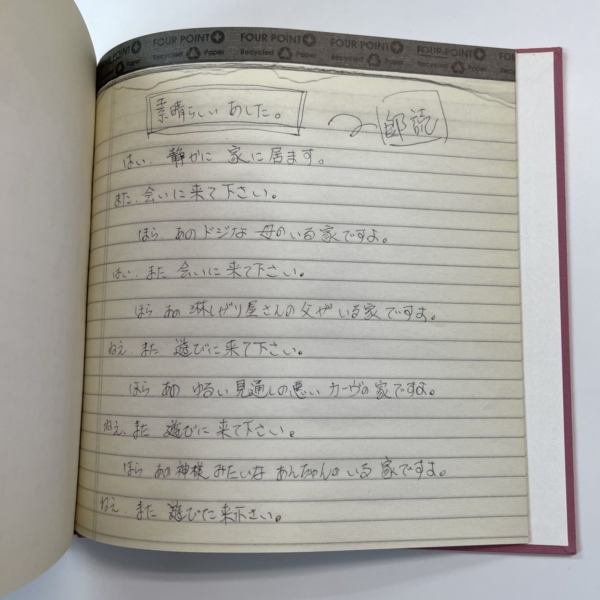 FOUR POINT FOUR POINT FOUR POINT FOUR POINT FOUR POINT
Recycled Paper Recycled Paper Recycled Paper Recycled Paper
素晴らしい あした。 郎読
はい、静かに 家に居ます。
また、会いに来て下さい。
ほら あの ドジな 母の いる 家ですよ。
はい、また 会いに 来て下さい。
ほら あの 淋しがり屋さんの 父が いる 家ですよ。
ねえ、また 遊びに 来て下さい。
ほら あの ゆるい 見通しの悪い カーヴの 家ですよ。
ねえ、また 遊びに 来て下さい。
ほら あの 神様 みたいな あんちゃんの いる 家ですよ。
ねえ、また 遊びに来下さい。